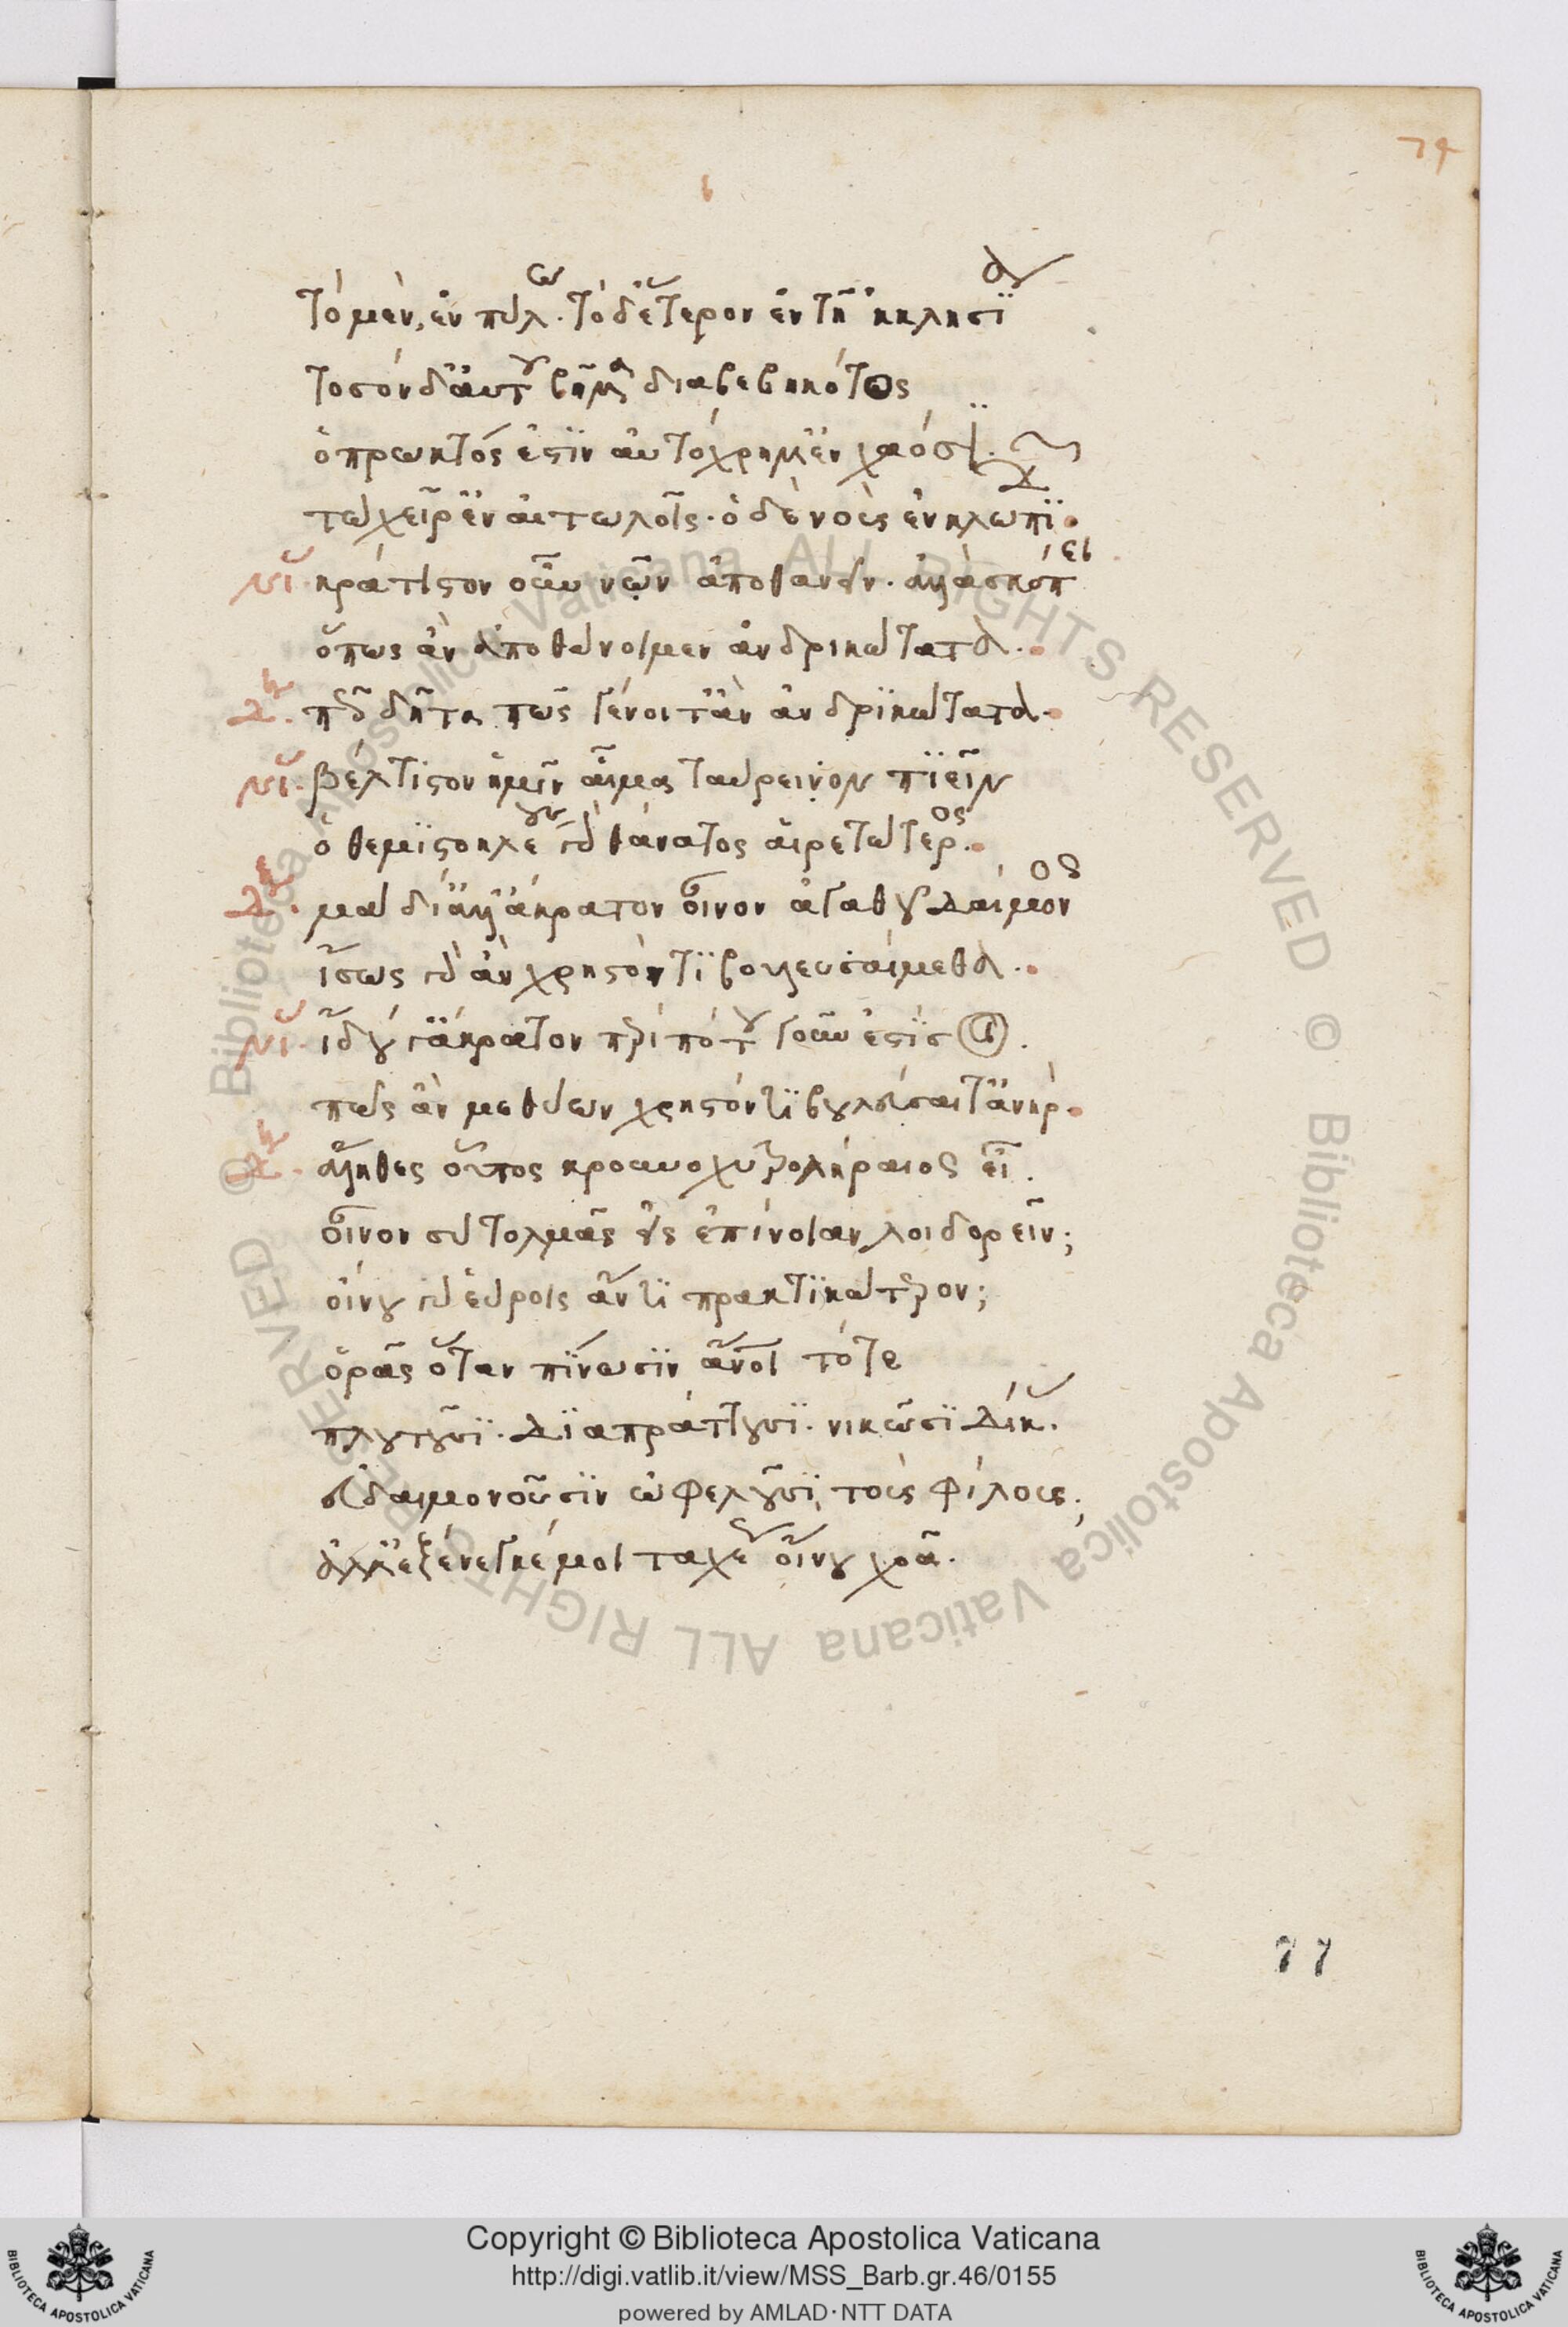 74
τὸ μὲν, ἐν πύλω. τὸ δ' ἕτερον ἐν τῆ 'κκλησία
τοσόνδ' αὐτοῦ βῆμα διαβεβηκότος
ὁ πρωκτός ἐστιν αὐτόχρημ' ἐν χάοσι.
τὼ χεῖρ' ἐν αἰτωλοῖς. ὁ δὲ νοῦς ἐν κλωπι
νι κράτιστον οὖν νῶν ἀποθανεῖν. ἀλλὰ σκόπει
ὅπως ἂν ἀποθάνοιμεν ἀνδρικώτατα.
δη πῶς δῆτα πῶς γένοιτ' ἂν ἀνδρικώτατα.
νι βέλτιστον ἡμῖν αἷμα ταύρειον πιεῖν
ὁ θεμιστοκλέους γὰρ θάνατος αἱρετώτερος.
δη μὰ δί' ἀλλ' ἄκρατον οἶνον ἀγαθοῦ δαίμονος
ἴσως γὰρ ἂν χρηστόν τι βουλευσαίμεθα.
νι ἰδού γ' ἄκρατον περὶ πότου γοῦν ἐστί σοι.
πῶς ἂν μεθύων χρηστόν τι βουλεύσαιτ' ἀνήρ.
δη ἄληθες οὗτος κρουνοχυτρολήραιος εἶ.
οἶνον σὺ τολμᾶς εἰς ἐπίνοιαν λοιδορεῖν;
οἴνου γὰρ εὕροις ἄν τι πρακτικώτερον;
ὁρᾶς ὅταν πίνωσιν ἄνοι τότε
πλουτοῦσι. διαπράττουσι. νικῶσι δίκ.
εὐδαιμονοῦσιν ὠφελοῦσι τοὺς φίλους.
ἀλλ' ἐξένεγκέ μοι ταχέως οἴνου χοᾶ.
77
© Biblioteca Apostolica Vaticana ALL RIGHTS RESERVED © Biblioteca Apostolica Vaticana ALL RIGHTS RESERVED
BIBLIOTECA APOSTOLICA VATICANA
Copyright © Biblioteca Apostolica Vaticana
http://digi.vatlib.it/view/MSS_Barb.gr.46/0155
powered by AMLAD·NTT DATA
BIBLIOTECA APOSTOLICA VATICANA